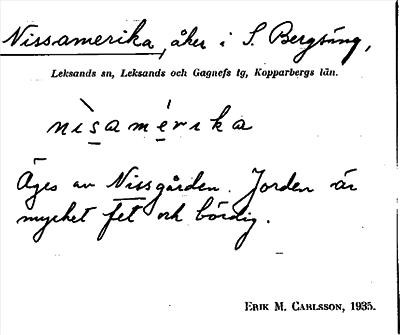 Nissamerika, åker i S. Bergsäng,
Leksands sn, Leksands och Gagnefs tg, Kopparbergs län.
nìsamérika
Äges av Nissgården. Jorden är
mycket fet och bördig.
ERIK M. CARLSSON, 1935.